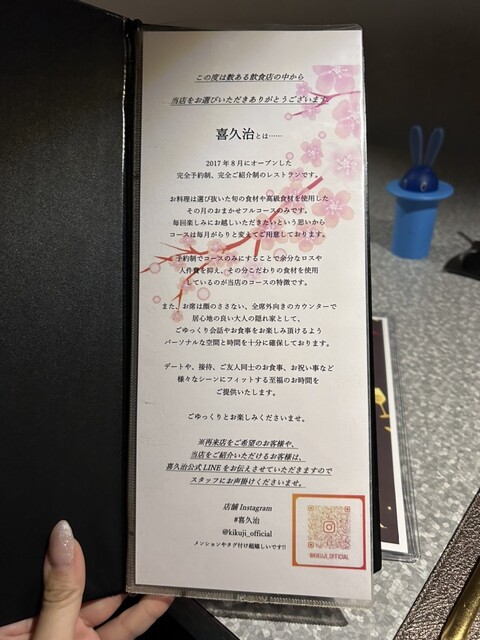 この度は数ある飲食店の中から
当店をお選びいただきありがとうございます。
喜久治とは……
2017年8月にオープンした
完全予約制、完全ご紹介制のレストランです。
お料理は選び抜いた旬の食材や高級食材を使用した
その月のおまかせフルコースのみです。
毎回楽しみにお越しいただきたいという思いから
コースは毎月がらりと変えてご用意しております。
予約制でコースのみにすることで余分なロスや
人件費を抑え、その分こだわりの食材を使用
しているのが当店のコースの特徴です。
また、お席は顔のささない、全席外向きのカウンターで
居心地の良い大人の隠れ家として、
ごゆっくり会話やお食事をお楽しみ頂けるよう
パーソナルな空間と時間を十分に確保しております。
デートや、接待、ご友人同士のお食事、お祝い事など
様々なシーンにフィットする至福のお時間を
ご提供いたします。
ごゆっくりとお楽しみくださいませ。
※再来店をご希望のお客様や、
当店をご紹介いただけるお客様は、
喜久治公式LINEをお伝えさせていただきますので
スタッフにお声掛けくださいませ。
店舗 Instagram
#喜久治
@kikuji_official
メンションやタグ付け超嬉しいです!!
@KIKUJI_OFFICIAL